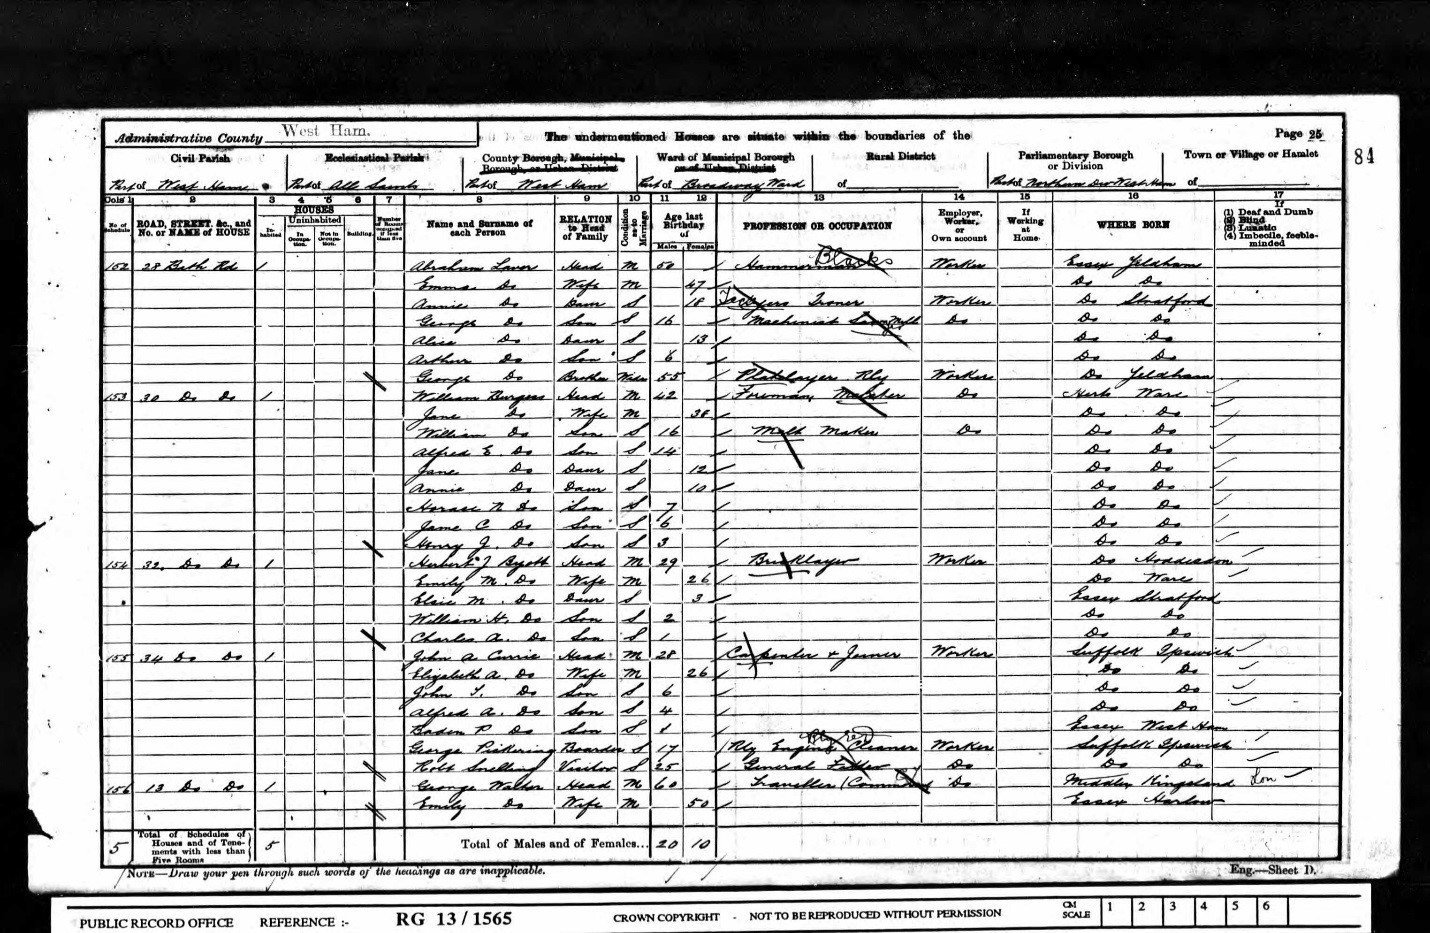 Administrative County West Ham.
The undermentioned Houses are situate within the boundaries of the
Page 25
84
Civil Parish
Ecclesiastical Parish
County Borough, Municipal Borough, or Urban District
Ward of Municipal Borough or of Urban District
Rural District
Parliamentary Borough or Division
Town or Village or Hamlet
Part of West Ham
Part of All Saints
Part of West Ham
Part of Broadway Ward
of
Part of Northern Div West Ham
of
Cols 1 2 3 4 5 6 7 8 9 10 11 12 13 14 15 16 17
No of Schedule
ROAD, STREET, &c., and No. or NAME of HOUSE
HOUSES
Inhabited
Uninhabited
In Occupation.
Not in Occupation.
Building
Number of Rooms occupied if less than five
Name and Surname of each Person
RELATION to Head of Family
Condition as to Marriage
Age last Birthday of
Males Females
PROFESSION OR OCCUPATION
Employer, Worker, or Own account
If Working at Home
WHERE BORN
If
(1) Deaf and Dumb
(2) Blind
(3) Lunatic
(4) Imbecile, feeble-minded
152 28 Bath Rd 1 Abraham Laver Head M 50 Hammerman Blacks Worker Essex Yeldham
Emma Do Wife M 47 Do Do
Annie Do Daur S 18 Ironer Worker Do Stratford
George Do Son S 16 Machinist Do Do Do
Alice Do Daur S 13 Do Do
Arthur Do Son S 6 Do Do
George Do Brother Widr 55 Platelayer Rly Worker Do Yeldham
153 30 Do Do 1 William Burgess Head M 42 Foreman Maltster Do Herts Ware
Jane Do Wife M 38 Do Do
William Do Son S 16 Malt Maker Do Do Do
Alfred E. Do Son S 14 Do Do
Jane Do Daur S 12 Do Do
Annie Do Daur S 10 Do Do
Horace Do Son S 7 Do Do
Jame C Do Son S 6 Do Do
Henry J. Do Son S 3 Do Do
154 32 Do Do 1 Herbert J Byott Head M 29 Bricklayer Worker Do Hoddesdon
Emily M. Do Wife M 26 Do Ware
Elsie M. Do Daur S 3 Essex Stratford
William H. Do Son S 2 Do Do
Charles A. Do Son S 1 Do Do
155 34 Do Do 1 John A. Currie Head M 28 Carpenter & Joiner Worker Suffolk Ipswich
Elizabeth A. Do Wife M 26 Do Do
John Do Son S 6 Do Do
Alfred A. Do Son S 4 Do Do
Baden P Do Son S 1 Essex West Ham
George Pickering Boarder S 17 Rly Engine Cleaner Worker Suffolk Ipswich
Robt Snelling Visitor S 25 General Do Do Do
156 13 Do Do 1 George Walter Head M 60 Traveller Do Middlx Kingsland Lon
Emily Do Wife M 50 Essex Harlow
5 Total of Schedules of Houses and of Tenements with less than Five Rooms 5 Total of Males and of Females... 20 10
NOTE—Draw your pen through such words of the headings as are inapplicable.
Eng.—Sheet D.
PUBLIC RECORD OFFICE REFERENCE :- RG 13 / 1565 CROWN COPYRIGHT - NOT TO BE REPRODUCED WITHOUT PERMISSION CM SCALE 1 2 3 4 5 6